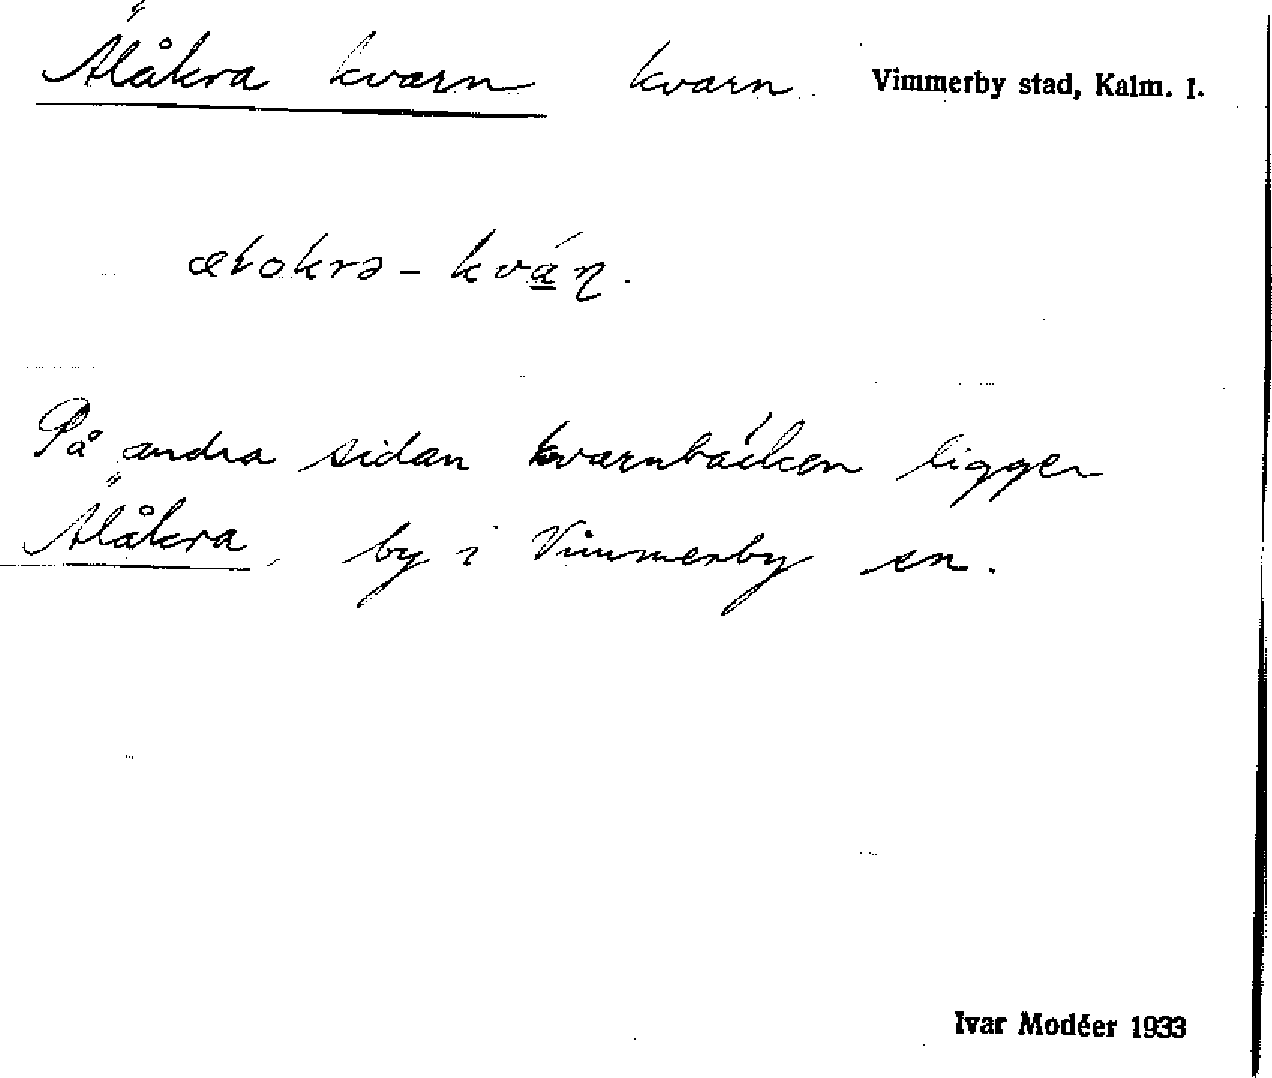 Älåkra kvarn kvarn. Vimmerby stad, Kalm. l.
æłokrə - kvá̲ɳ.
På andra sidan kvarnbäcken ligger
Älåkra, by i Vimmerby sn.
Ivar Modéer 1933